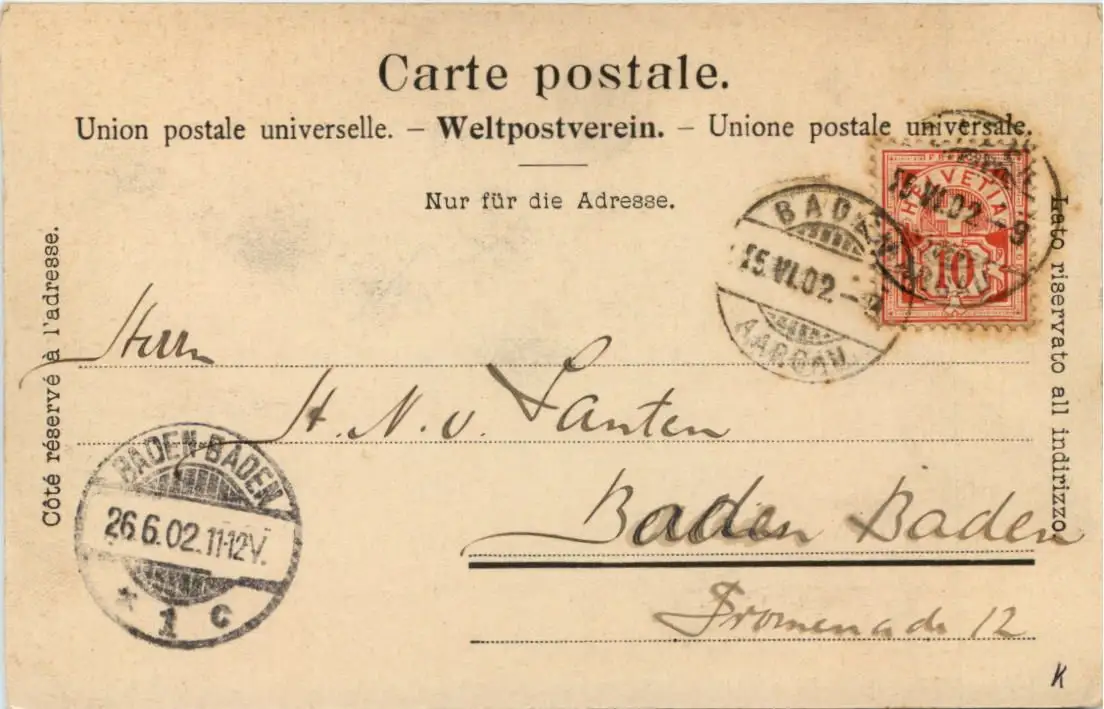 Carte postale.
Union postale universelle. – Weltpostverein. – Unione postale universale.
Nur für die Adresse.
Côté réservé à l'adresse.
Lato riservato all indirizzo.
HELVETIA
10
BADEN
VI.02.
AARGAU
Herrn
H. N. v. Santen
Baden Baden
Promenade 12
BADEN-BADEN
26.6.02.11-12V.
* 1 c
K